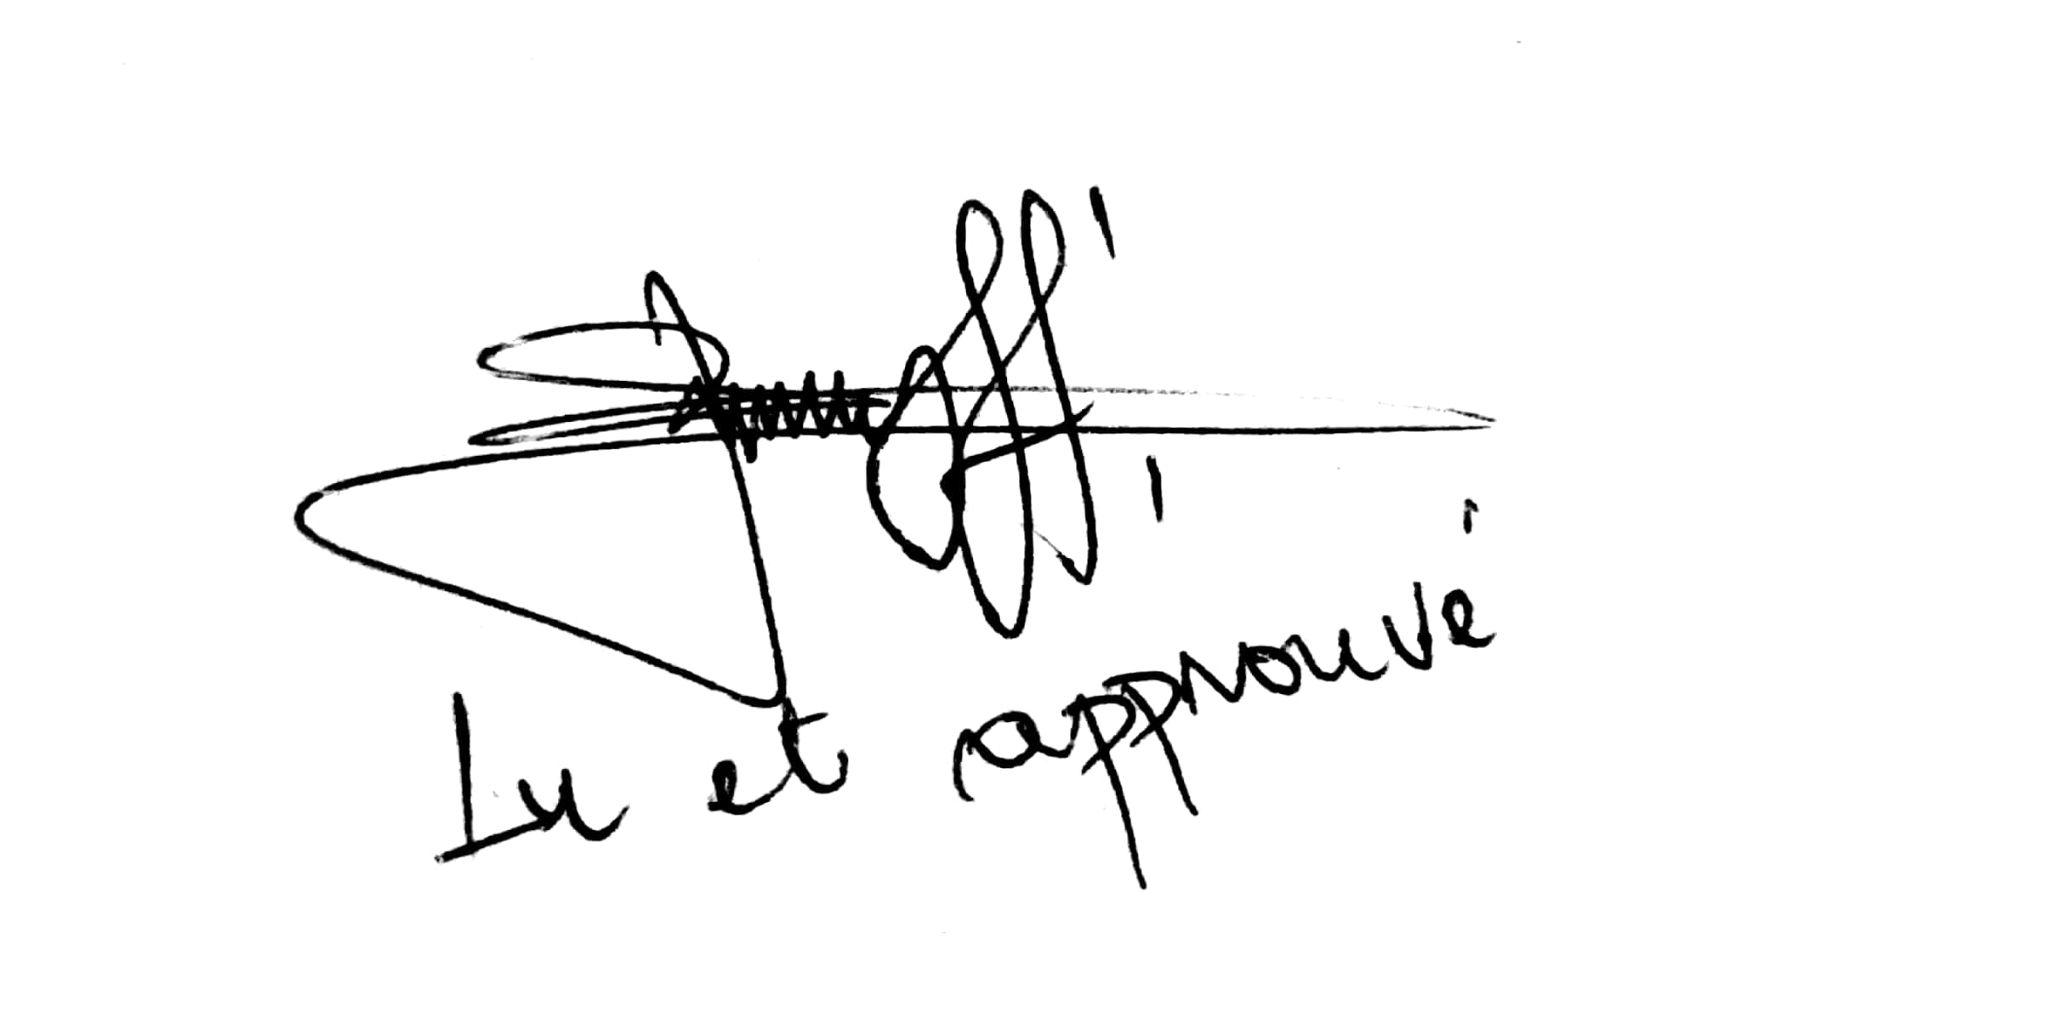 Lu et approuvé